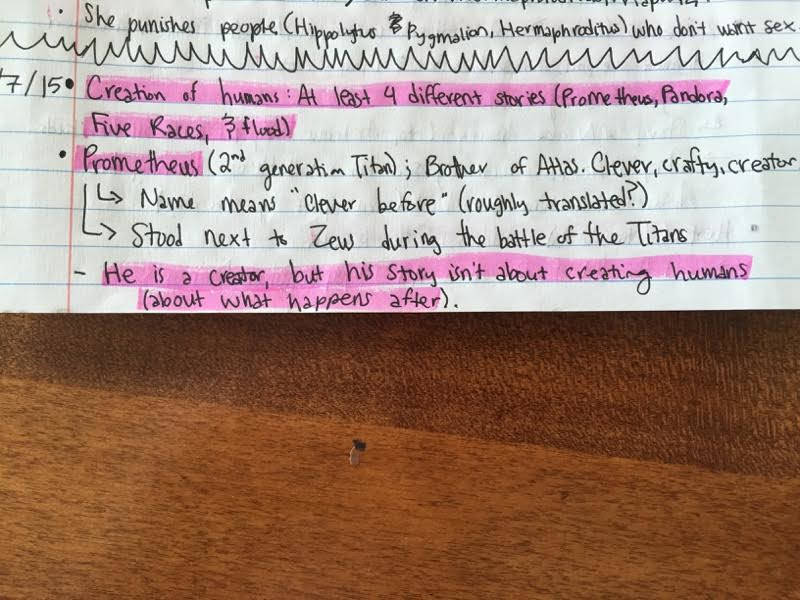 • She punishes people (Hippolytus & Pygmalion, Hermaphroditus) who don't want sex.
7/15 • Creation of humans: At least 4 different stories (Prometheus, Pandora,
Five Races, & flood)
• Prometheus (2nd generation Titan); Brother of Atlas. Clever, crafty, creator
↳ Name means "Clever before" (roughly translated?)
↳ Stood next to Zeus during the battle of the Titans
- He is a creator, but his story isn't about creating humans
(about what happens after).